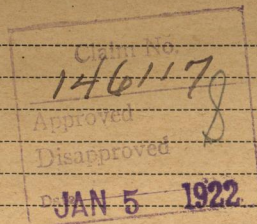 Claim No.
146117
Approved
Disapproved
JAN 5 1922